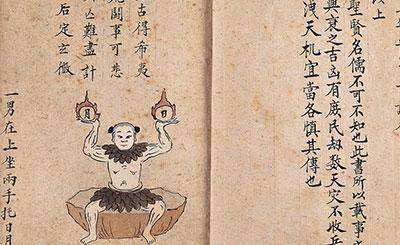 以上
聖賢名儒不可不知也此書所以載事
興衰之吉凶有庶民劫數天灾不收兵
洩天机宜當各慎其傳也
古得希夷
事可悲
難盡計
后定玄微
日
月
一男在上坐兩手托日月